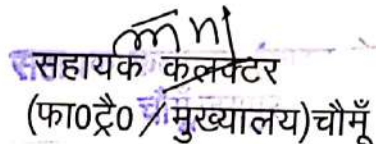 सहायक कलक्टर
(फा0ट्रै0 / मुख्यालय)चौमूँ